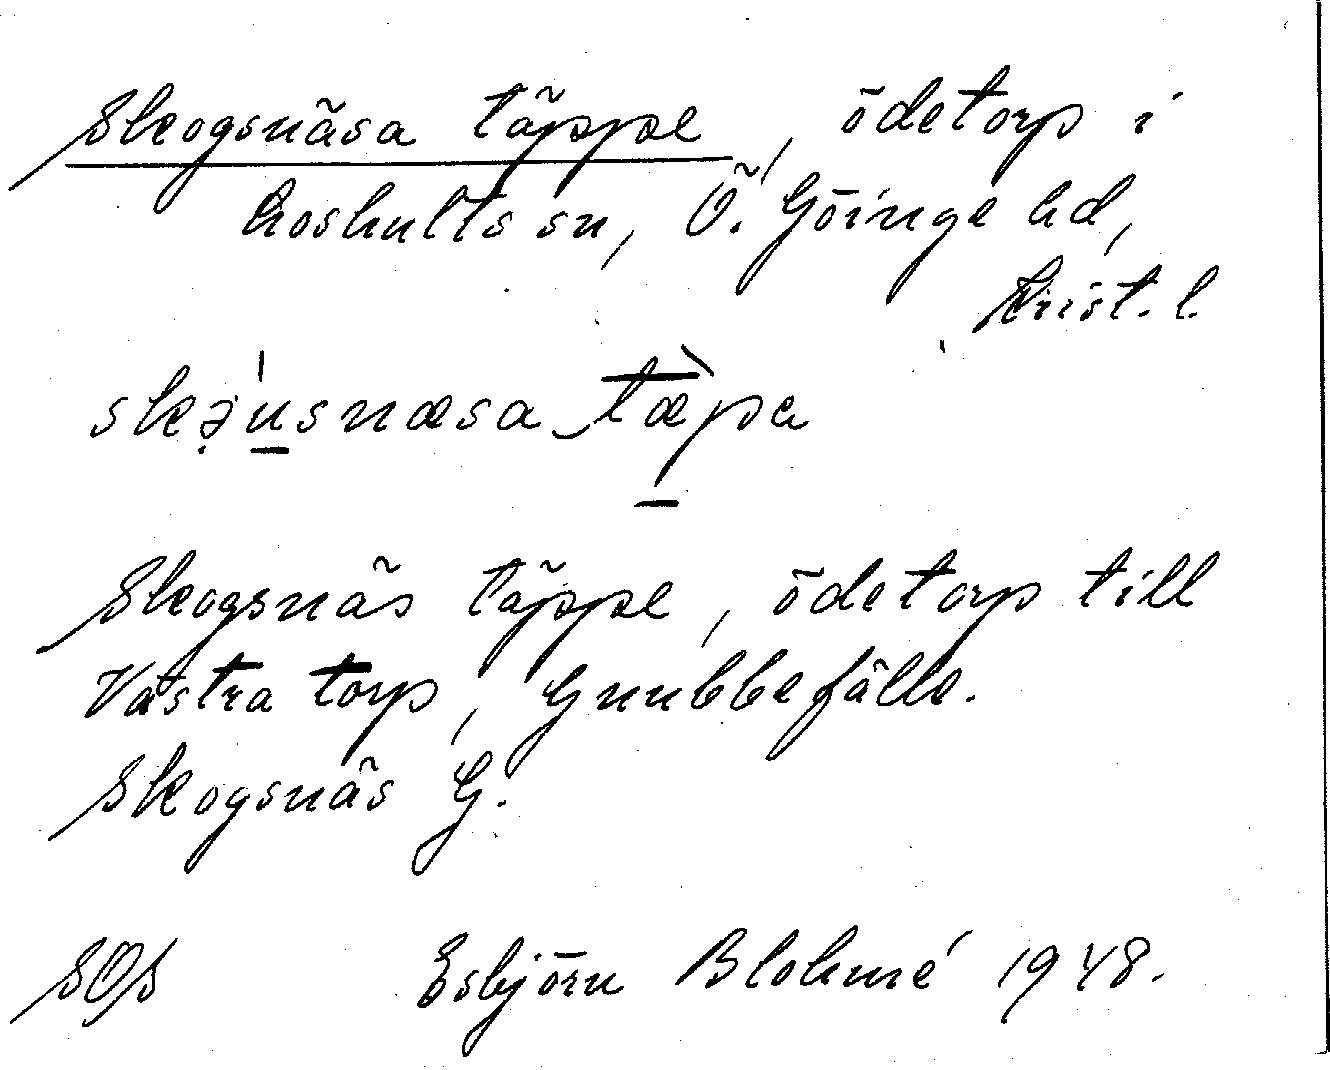 Skogsnäsa täppe, ödetorp i
Loshults sn, Ö. Göinge hd,
Krist. l.
skəusnæsa tæpa
Skogsnäs täppe, ödetorp till
Västra torp, Gnubbefälle.
Skogsnäs G.
SOS Esbjörn Blohmé 1948.